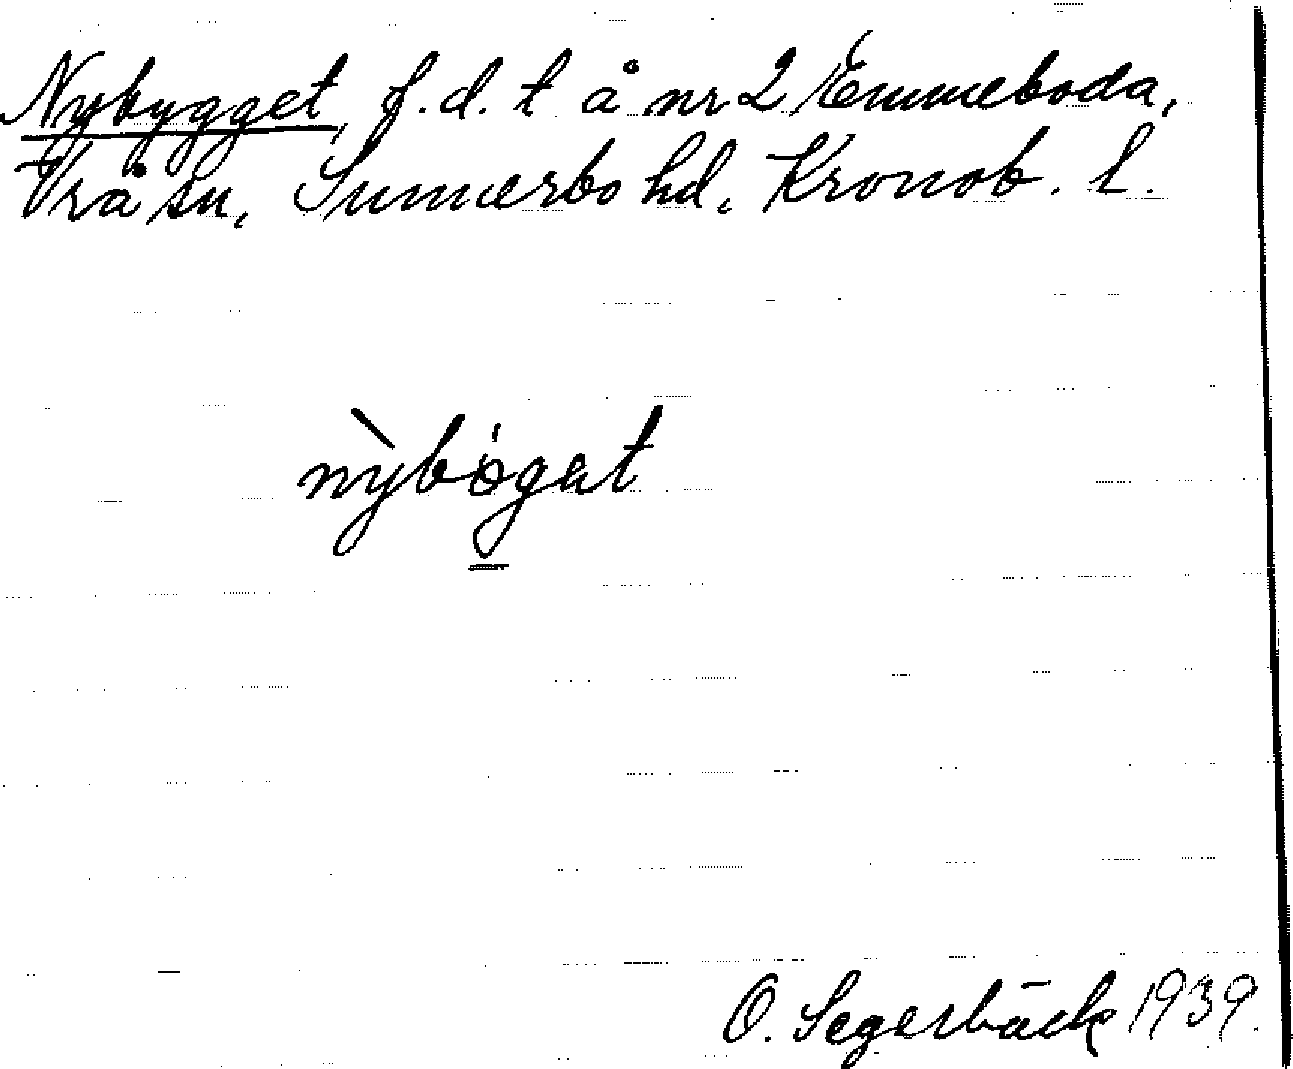 Nybygget, f.d. t å nr 2 Emmeboda,
Vrå sn, Sunnerbo hd, Kronob. l.
nỳbøget
O. Segerbäck 1939.